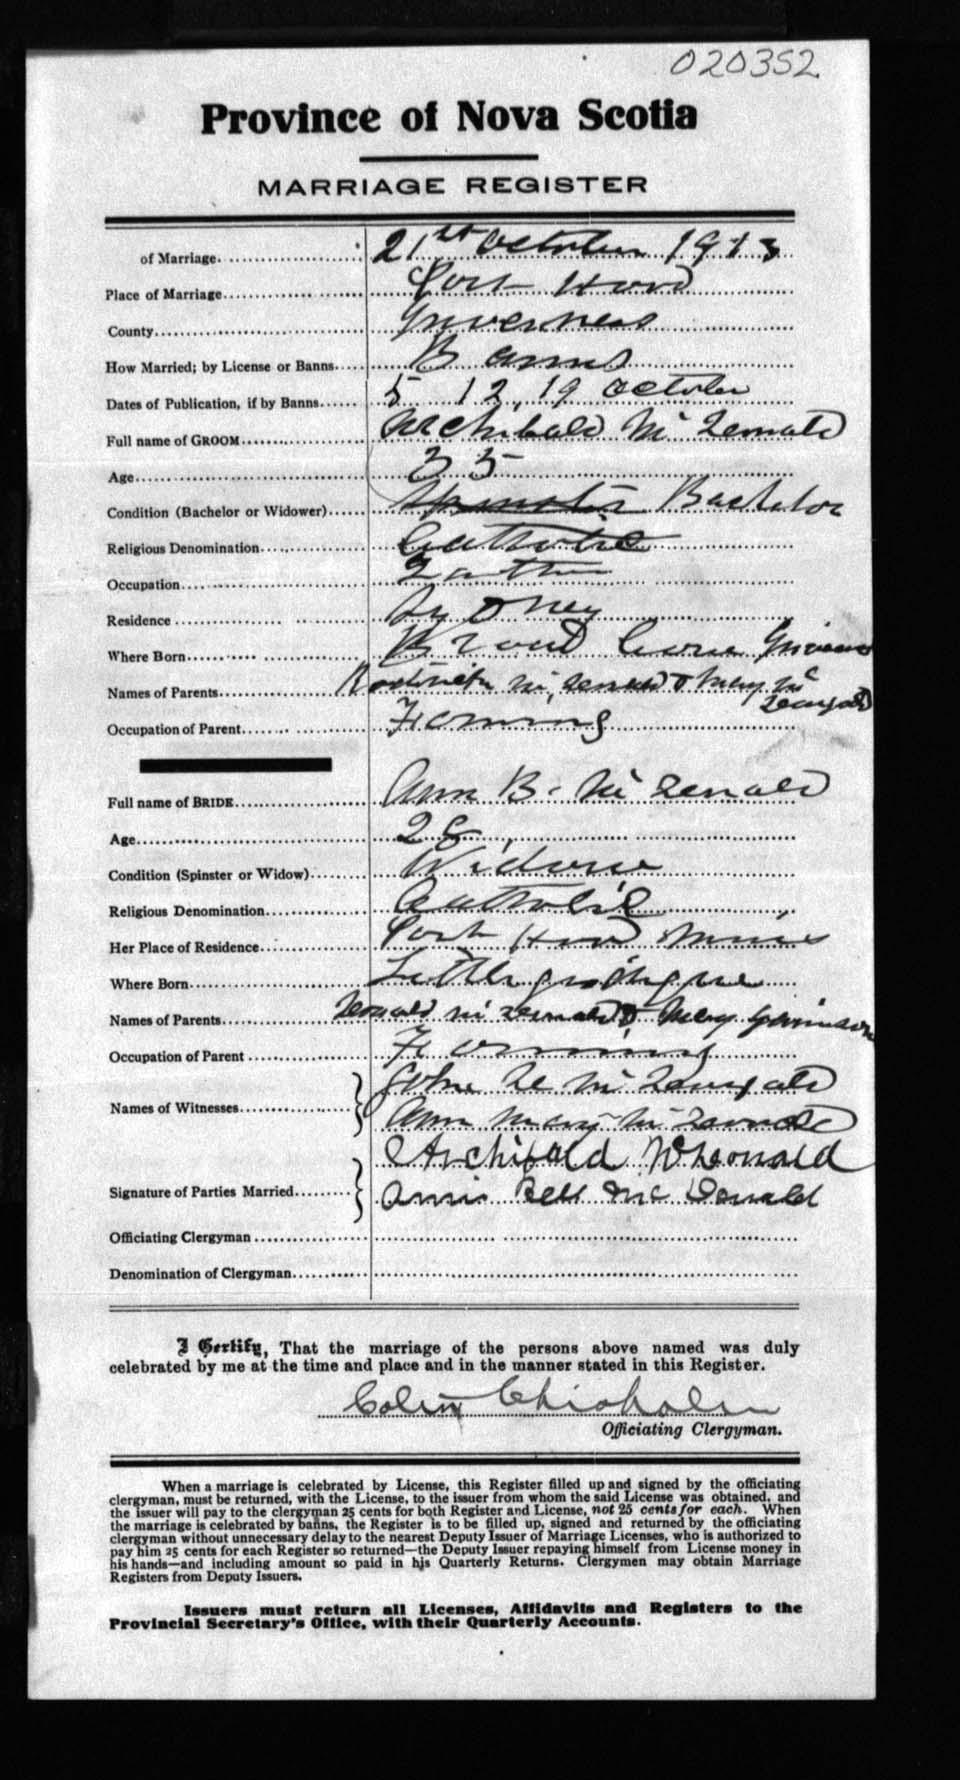 020352
Province of Nova Scotia
MARRIAGE REGISTER
of Marriage 21st October 1913
Place of Marriage Port Hood
County Inverness
How Married; by License or Banns Banns
Dates of Publication, if by Banns 5 12, 19 October
Full name of GROOM Archibald Mc Donald
Age 35
Condition (Bachelor or Widower) Bachelor
Religious Denomination Catholic
Occupation
Residence Sydney
Where Born Broad Cove
Names of Parents Mc Donald & Mary Mc
Occupation of Parent Farming
Full name of BRIDE Ann B. Mc Donald
Age 28
Condition (Spinster or Widow) Widow
Religious Denomination Catholic
Her Place of Residence Port Hood Mines
Where Born Little Judique
Names of Parents Donald Mc Donald & Mary
Occupation of Parent Farming
Names of Witnesses John Mc
Ann Mary Mc Donald
Signature of Parties Married Archibald McDonald
Annie Bell Mc Donald
Officiating Clergyman
Denomination of Clergyman
I Certify, That the marriage of the persons above named was duly
celebrated by me at the time and place and in the manner stated in this Register.
Colin Chisholm
Officiating Clergyman.
When a marriage is celebrated by License, this Register filled up and signed by the officiating
clergyman, must be returned, with the License, to the issuer from whom the said License was obtained, and
the issuer will pay to the clergyman 25 cents for both Register and License, not 25 cents for each. When
the marriage is celebrated by banns, the Register is to be filled up, signed and returned by the officiating
clergyman without unnecessary delay to the nearest Deputy Issuer of Marriage Licenses, who is authorized to
pay him 25 cents for each Register so returned—the Deputy Issuer repaying himself from License money in
his hands—and including amount so paid in his Quarterly Returns. Clergymen may obtain Marriage
Registers from Deputy Issuers.
Issuers must return all Licenses, Affidavits and Registers to the
Provincial Secretary's Office, with their Quarterly Accounts.